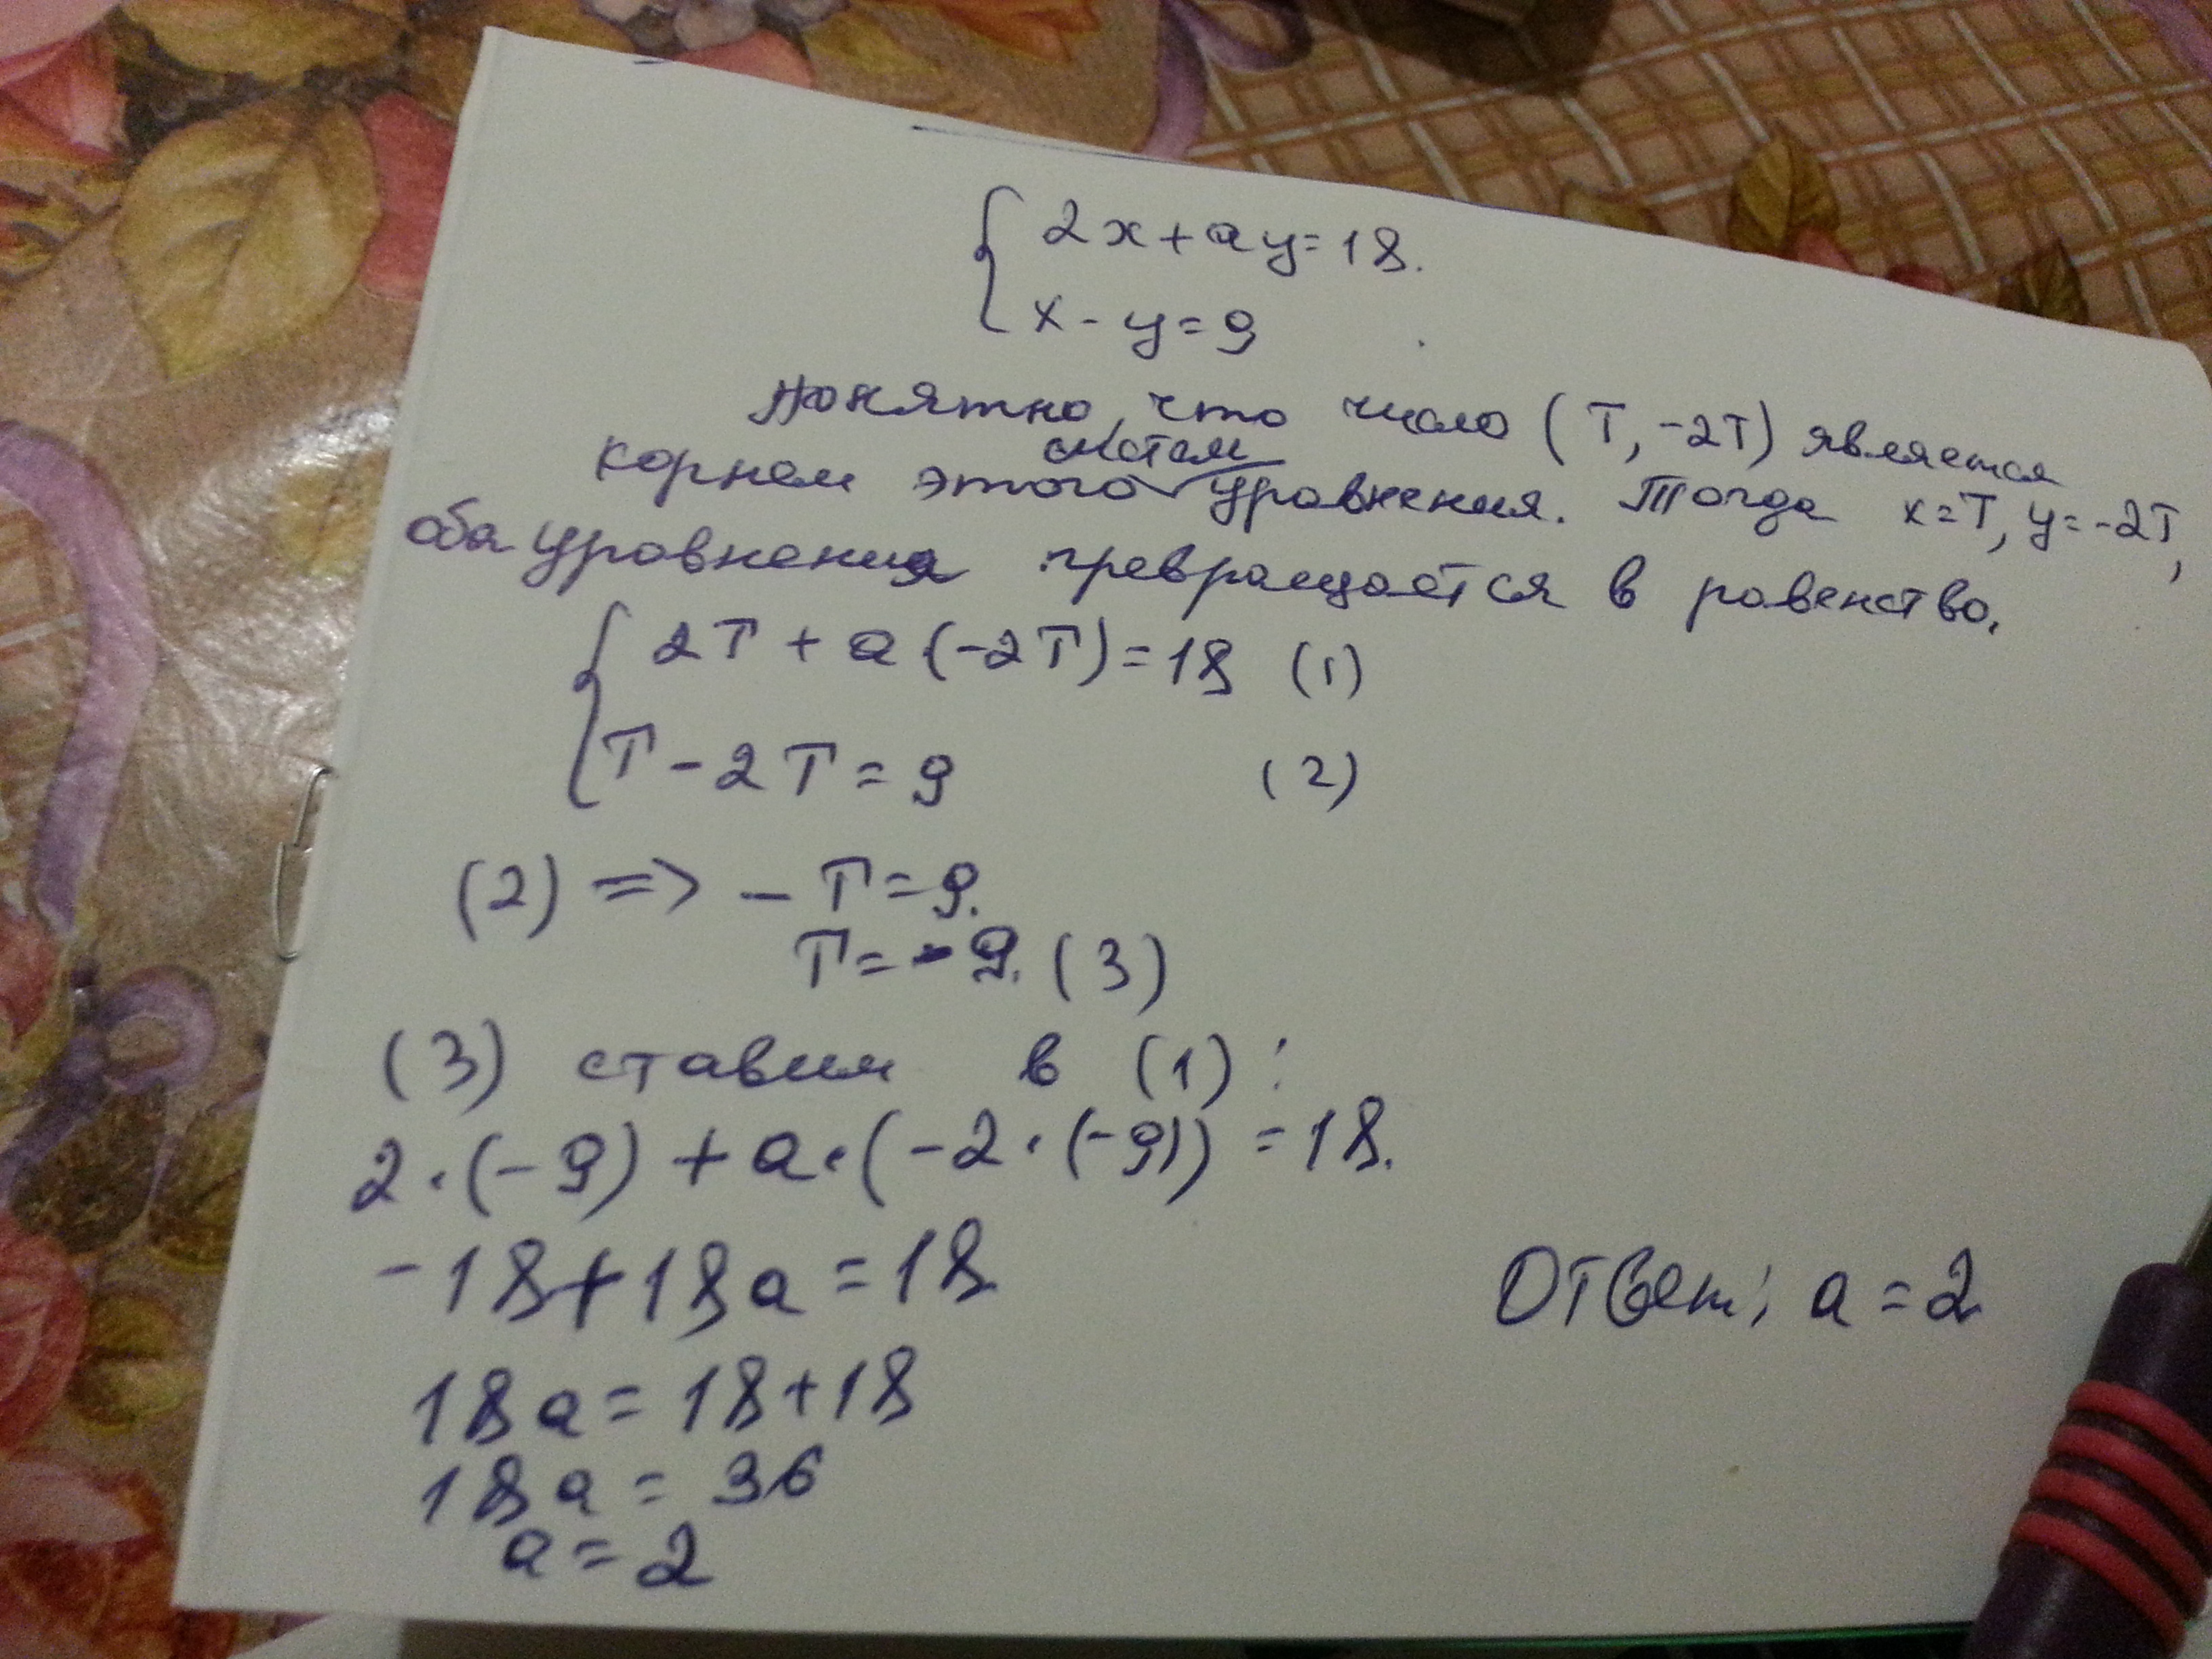 { 2x + ay = 18.
x - y = 9
понятно, что число (T, -2T) является
систем
корнем этого уровнения. Тогда x=T, y=-2T,
оба уровнения превращается в равенство.
{ 2T + a·(-2T) = 18 (1)
T - 2T = 9 (2)
(2) => - T = 9.
T = -9. (3)
(3) ставим в (1):
2·(-9) + a·(-2·(-9)) = 18.
-18 + 18a = 18
18a = 18 + 18
18a = 36
a = 2
Ответ: a = 2